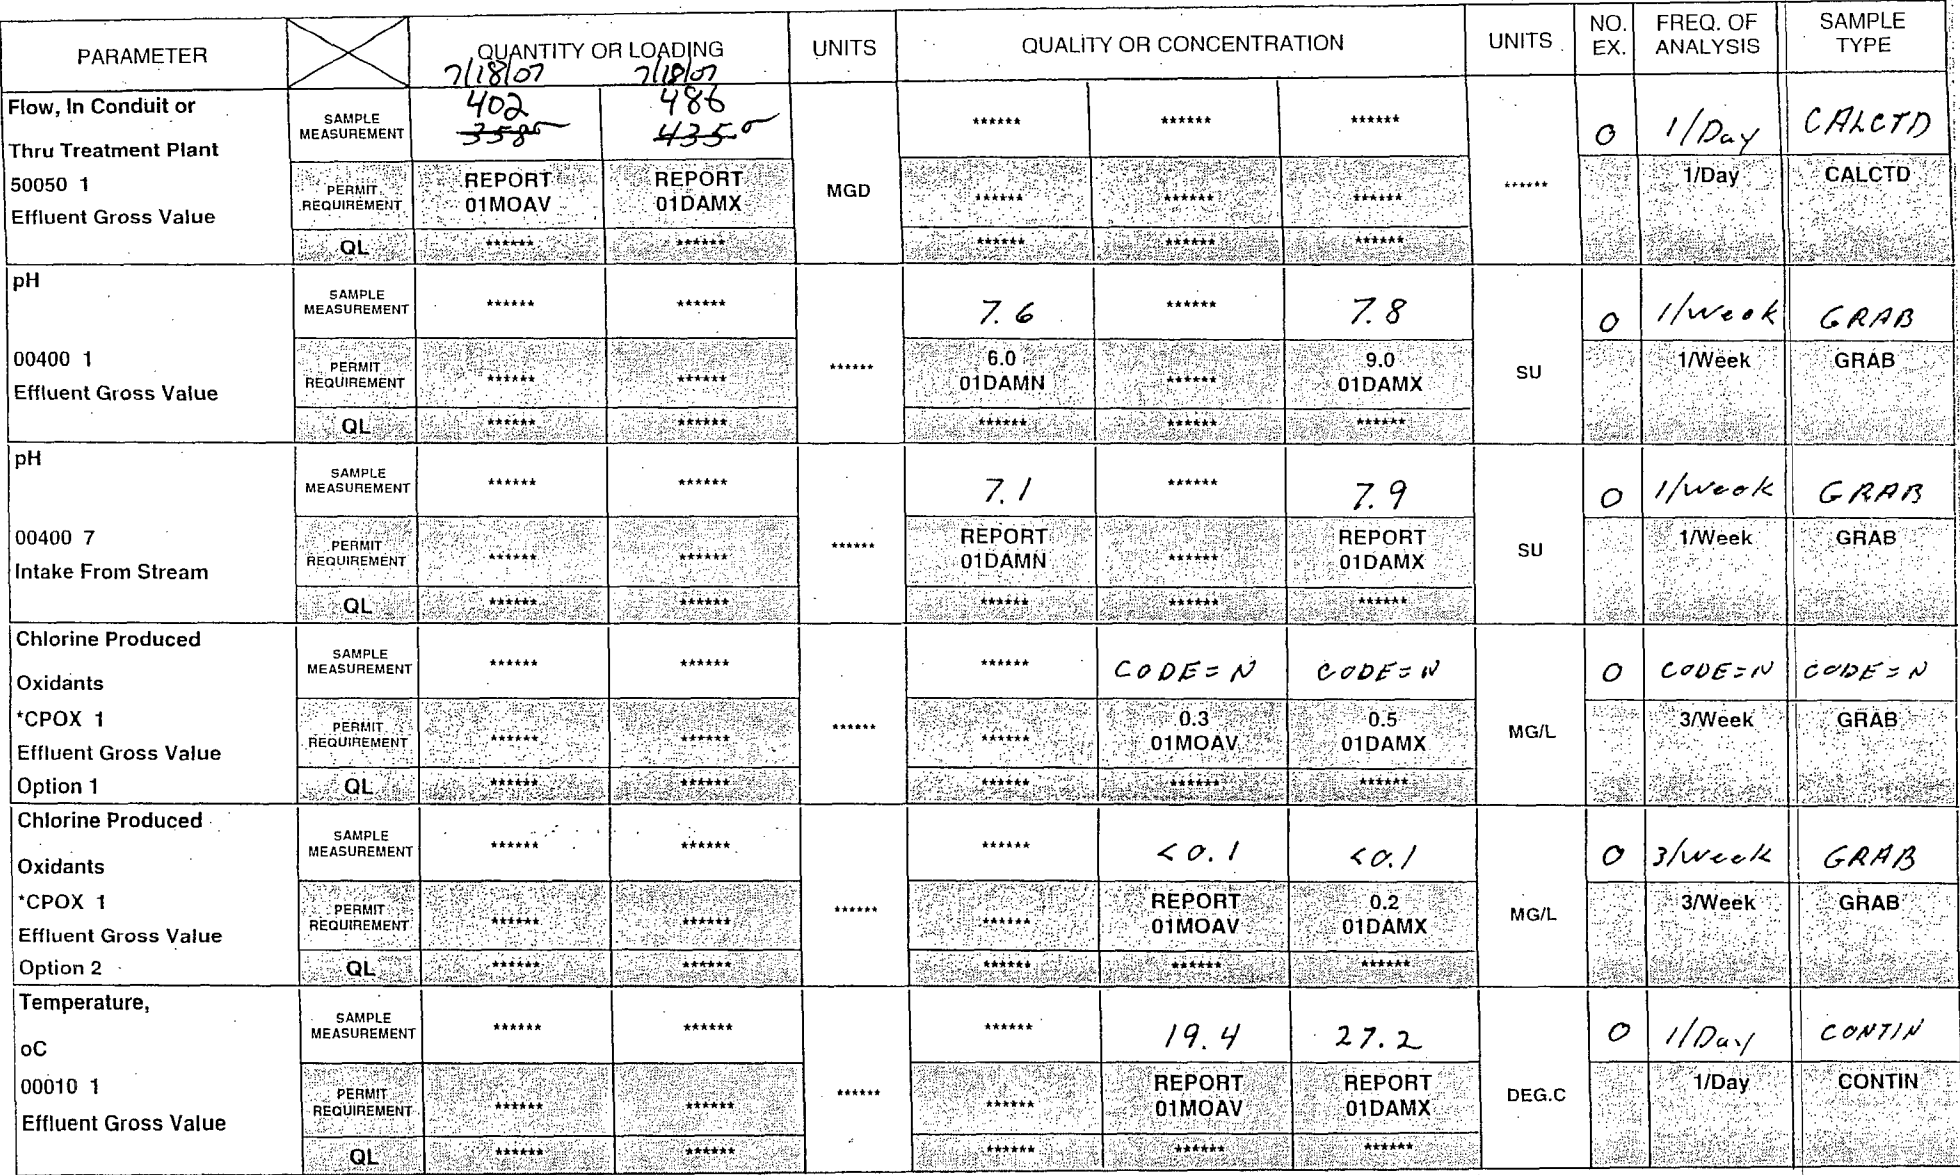 PARAMETER QUANTITY OR LOADING UNITS QUALITY OR CONCENTRATION UNITS NO. EX. FREQ. OF ANALYSIS SAMPLE TYPE
7/18/07 7/18/07
Flow, In Conduit or
Thru Treatment Plant
50050 1
Effluent Gross Value
SAMPLE MEASUREMENT 402 486 ****** ****** ****** 0 1/Day CALCTD
358 435
PERMIT REQUIREMENT REPORT 01MOAV REPORT 01DAMX MGD ****** ****** ****** ****** 1/Day CALCTD
QL ****** ****** ****** ****** ******
pH
00400 1
Effluent Gross Value
SAMPLE MEASUREMENT ****** ****** 7.6 ****** 7.8 0 1/Week GRAB
PERMIT REQUIREMENT ****** ****** ****** 6.0 01DAMN ****** 9.0 01DAMX SU 1/Week GRAB
QL ****** ****** ****** ****** ******
pH
00400 7
Intake From Stream
SAMPLE MEASUREMENT ****** ****** 7.1 ****** 7.9 0 1/Week GRAB
PERMIT REQUIREMENT ****** ****** ****** REPORT 01DAMN ****** REPORT 01DAMX SU 1/Week GRAB
QL ****** ****** ****** ****** ******
Chlorine Produced
Oxidants
*CPOX 1
Effluent Gross Value
Option 1
SAMPLE MEASUREMENT ****** ****** ****** CODE=N CODE=N 0 CODE=N CODE=N
PERMIT REQUIREMENT ****** ****** ****** ****** 0.3 01MOAV 0.5 01DAMX MG/L 3/Week GRAB
QL ****** ****** ****** ****** ******
Chlorine Produced
Oxidants
*CPOX 1
Effluent Gross Value
Option 2
SAMPLE MEASUREMENT ****** ****** ****** <0.1 <0.1 0 3/Week GRAB
PERMIT REQUIREMENT ****** ****** ****** ****** REPORT 01MOAV 0.2 01DAMX MG/L 3/Week GRAB
QL ****** ****** ****** ****** ******
Temperature,
oC
00010 1
Effluent Gross Value
SAMPLE MEASUREMENT ****** ****** ****** 19.4 27.2 0 1/Day CONTIN
PERMIT REQUIREMENT ****** ****** ****** ****** REPORT 01MOAV REPORT 01DAMX DEG.C 1/Day CONTIN
QL ****** ****** ****** ****** ******